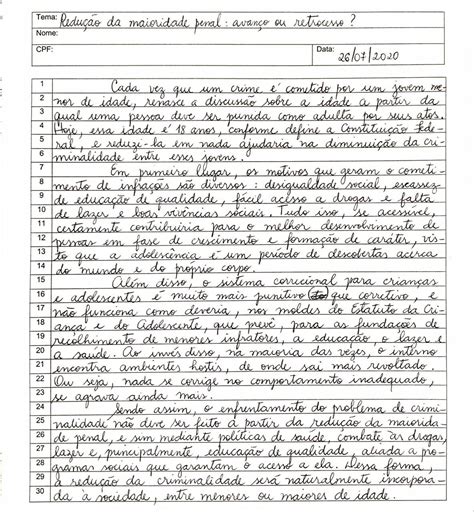 Tema: Redução da maioridade penal: avanço ou retrocesso?
Nome:
CPF:
Data: 26/07/2020
1 Cada vez que um crime é cometido por um jovem me-
2 nor de idade, renasce a discussão sobre a idade a partir da
3 qual uma pessoa deve ser punida como adulta por seus atos.
4 Hoje, essa idade é 18 anos, conforme define a Constituição Fede-
5 ral, e reduzi-la em nada ajudaria na diminuição da cri-
6 minalidade entre esses jovens.
7 Em primeiro lugar, os motivos que geram o cometi-
8 mento de infrações são diversos: desigualdade social, escassez
9 de educação de qualidade, fácil acesso a drogas e falta
10 de lazer e boas vivências sociais. Tudo isso, se acessível,
11 certamente contribuiria para o melhor desenvolvimento de
12 pessoas em fase de crescimento e formação de caráter, vis-
13 to que a adolescência é um período de descobertas acerca
14 do mundo e do próprio corpo.
15 Além disso, o sistema correcional para crianças
16 e adolescentes é muito mais punitivo que corretivo, e
17 não funciona como deveria, nos moldes do Estatuto da Cri-
18 ança e do Adolescente, que prevê, para as fundações de
19 recolhimento de menores infratores, a educação, o lazer e
20 a saúde. Ao invés disso, na maioria das vezes, o interno
21 encontra ambientes hostis, de onde sai mais revoltado.
22 Ou seja, nada se corrige no comportamento inadequado,
23 se agrava ainda mais.
24 Sendo assim, o enfrentamento do problema de crimi-
25 nalidade não deve ser feito a partir da redução da maiorida-
26 de penal, e sim mediante políticas de saúde, combate às drogas,
27 lazer e, principalmente, educação de qualidade, aliada a pro-
28 gramas sociais que garantam o acesso a ela. Dessa forma,
29 a redução da criminalidade será naturalmente incorpora-
30 da à sociedade, entre menores ou maiores de idade.